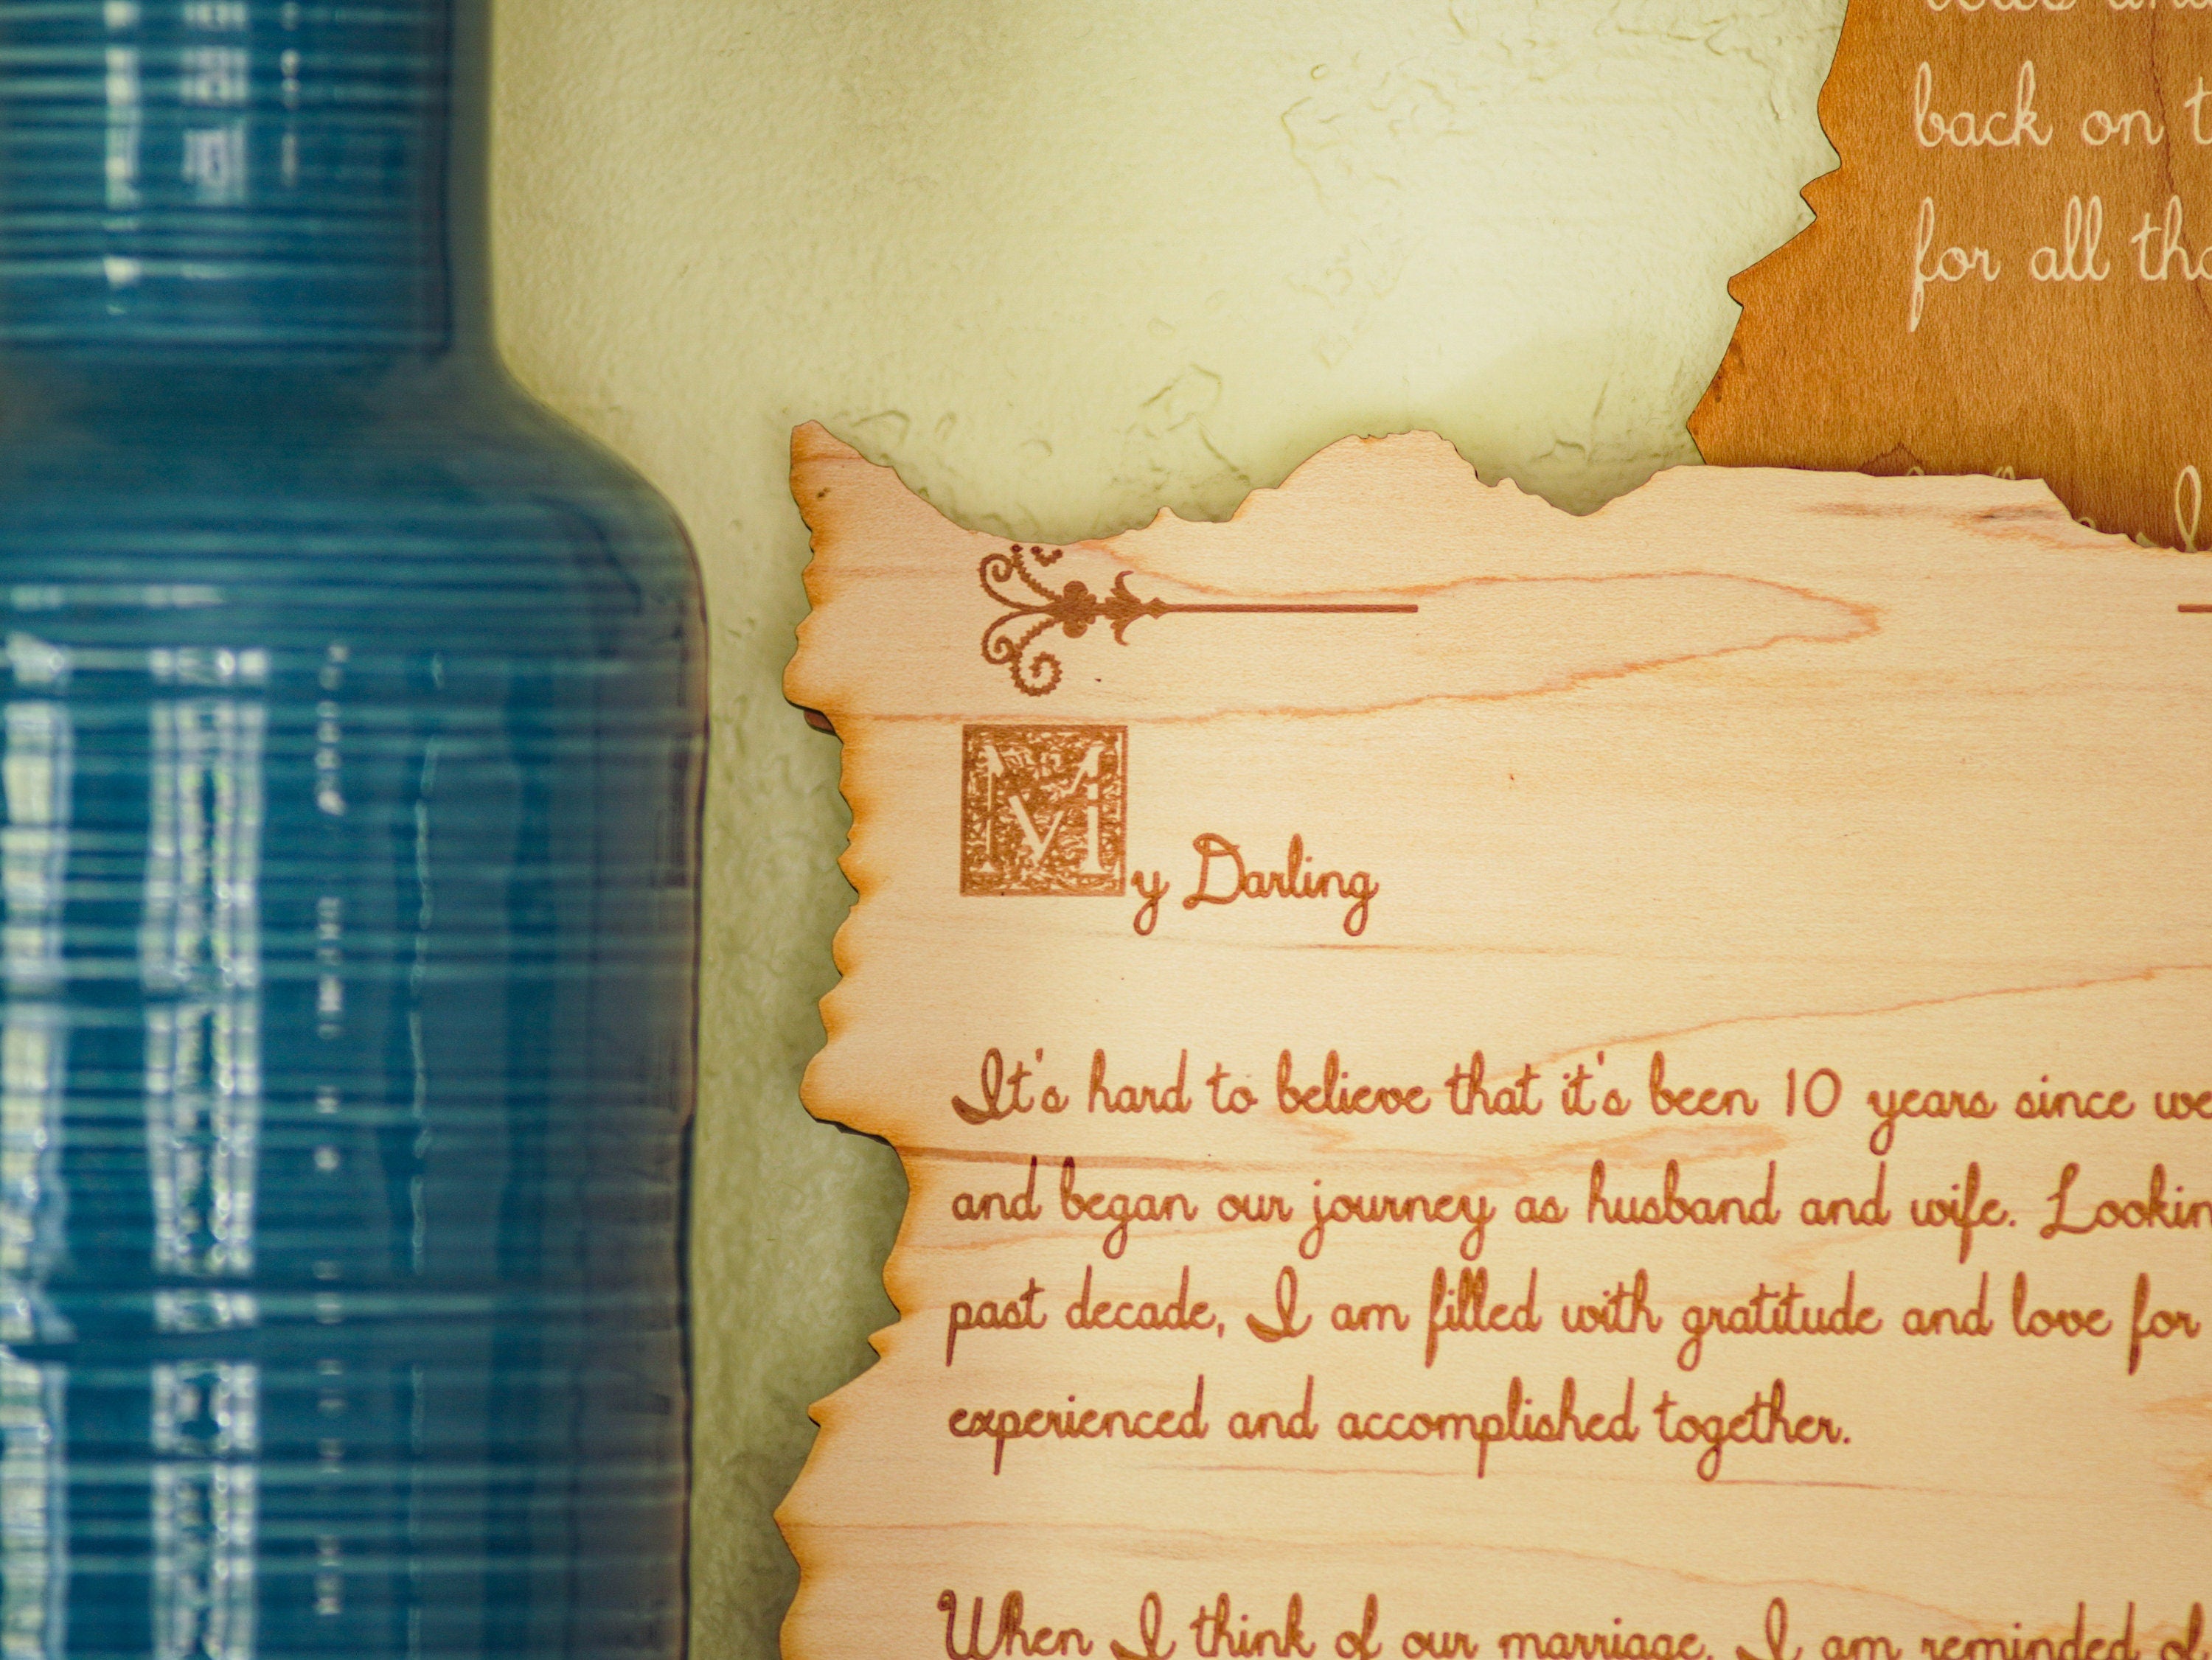 back on
for all
My Darling
It's hard to believe that it's been 10 years since we
and began our journey as husband and wife. Lookin
past decade, I am filled with gratitude and love for
experienced and accomplished together.
When I think of our marriage, I am reminded of